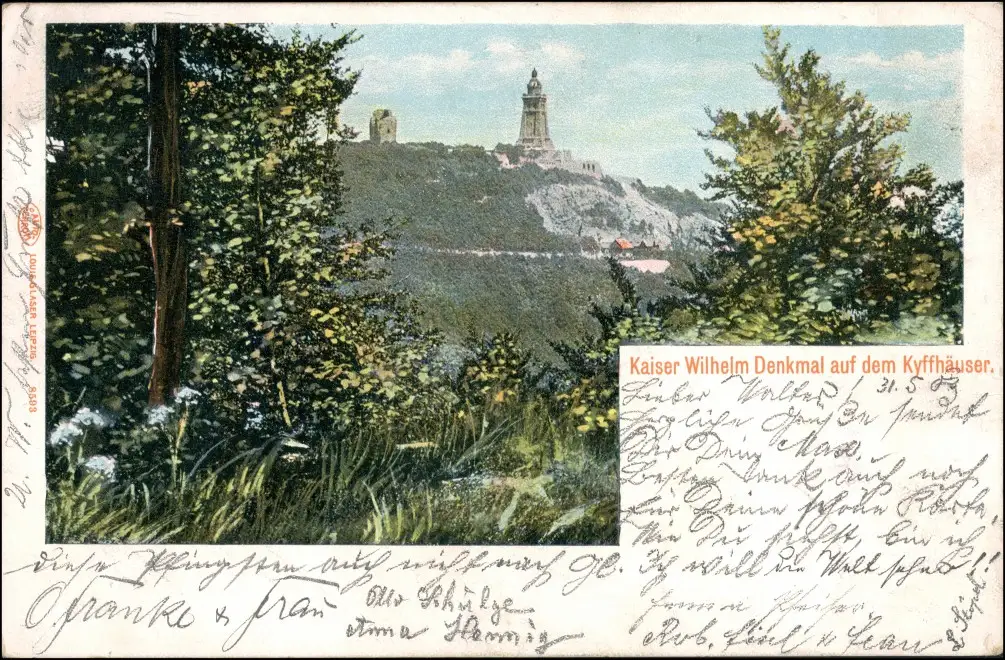 Kaiser Wilhelm Denkmal auf dem Kyffhäuser.
Lieber Walter! 31.5.03
Herzliche Grüße sendet
Dir Dein Max.
Besten Dank auch noch
für Deine schöne Karte.
Wie Du siehst, bin ich
diese Pfingsten auch nicht nach Gl. Ich will die Welt sehen!!
Franke & Frau
Otto Schulze
Anna Hennig
Emma Pfeifer.
Rob. & Frau
LOUIS GLASER LEIPZIG 8593